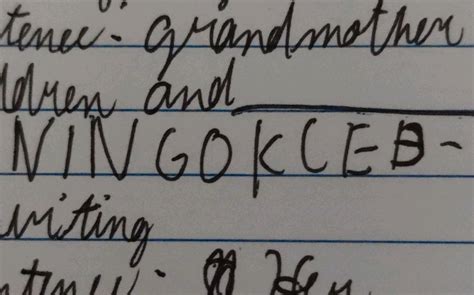 tence - grandmother
ldren and
NINGOKCEB-
writing